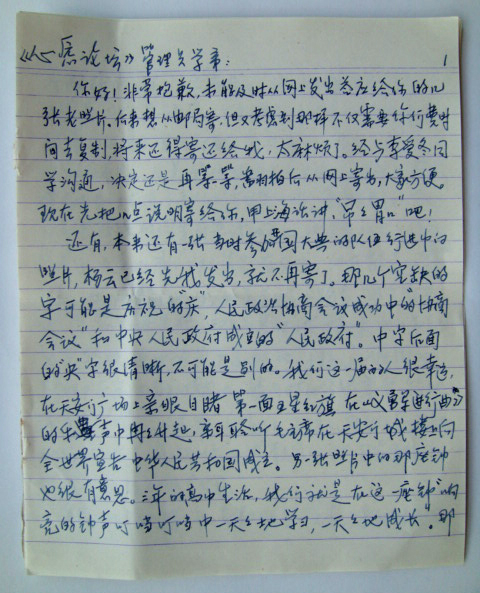 《心底论坛》管理员学弟: 1
你好!非常抱歉,未能及时从网上发出答应给你的几
张老照片。后来想从邮局寄,但又考虑到那样不仅需要你们费时
间去复制,将来还得寄还给我,太麻烦了。经与李爱冬同
学沟通,决定还是再等等,翻拍后从网上寄出,大家方便。
现在先把几点说明寄给你,用上海话讲,“吊吊胃口”吧!
还有,本来还有一张当时参加开国大典的队伍行进中的
照片,杨云已经先我发出,就不再寄了。那几个空缺的
字可能是庆祝的“庆”,人民政治协商会议成功中的“协商
会议”和中央人民政府成立的“人民政府”。中字后面
的“央”字很清晰,不可能是别的。我们这一届的人很幸运,
在天安门广场上亲眼目睹第一面五星红旗在《义勇军进行曲》
的乐声中冉冉升起,亲耳聆听毛主席在天安门城楼上向
全世界宣告中华人民共和国成立。另一张照片中的那座钟
也很有意思。三年的高中生活,我们就是在这一座钟“响
亮的钟声叮当叮当中一天天地学习,一天天地成长”。那